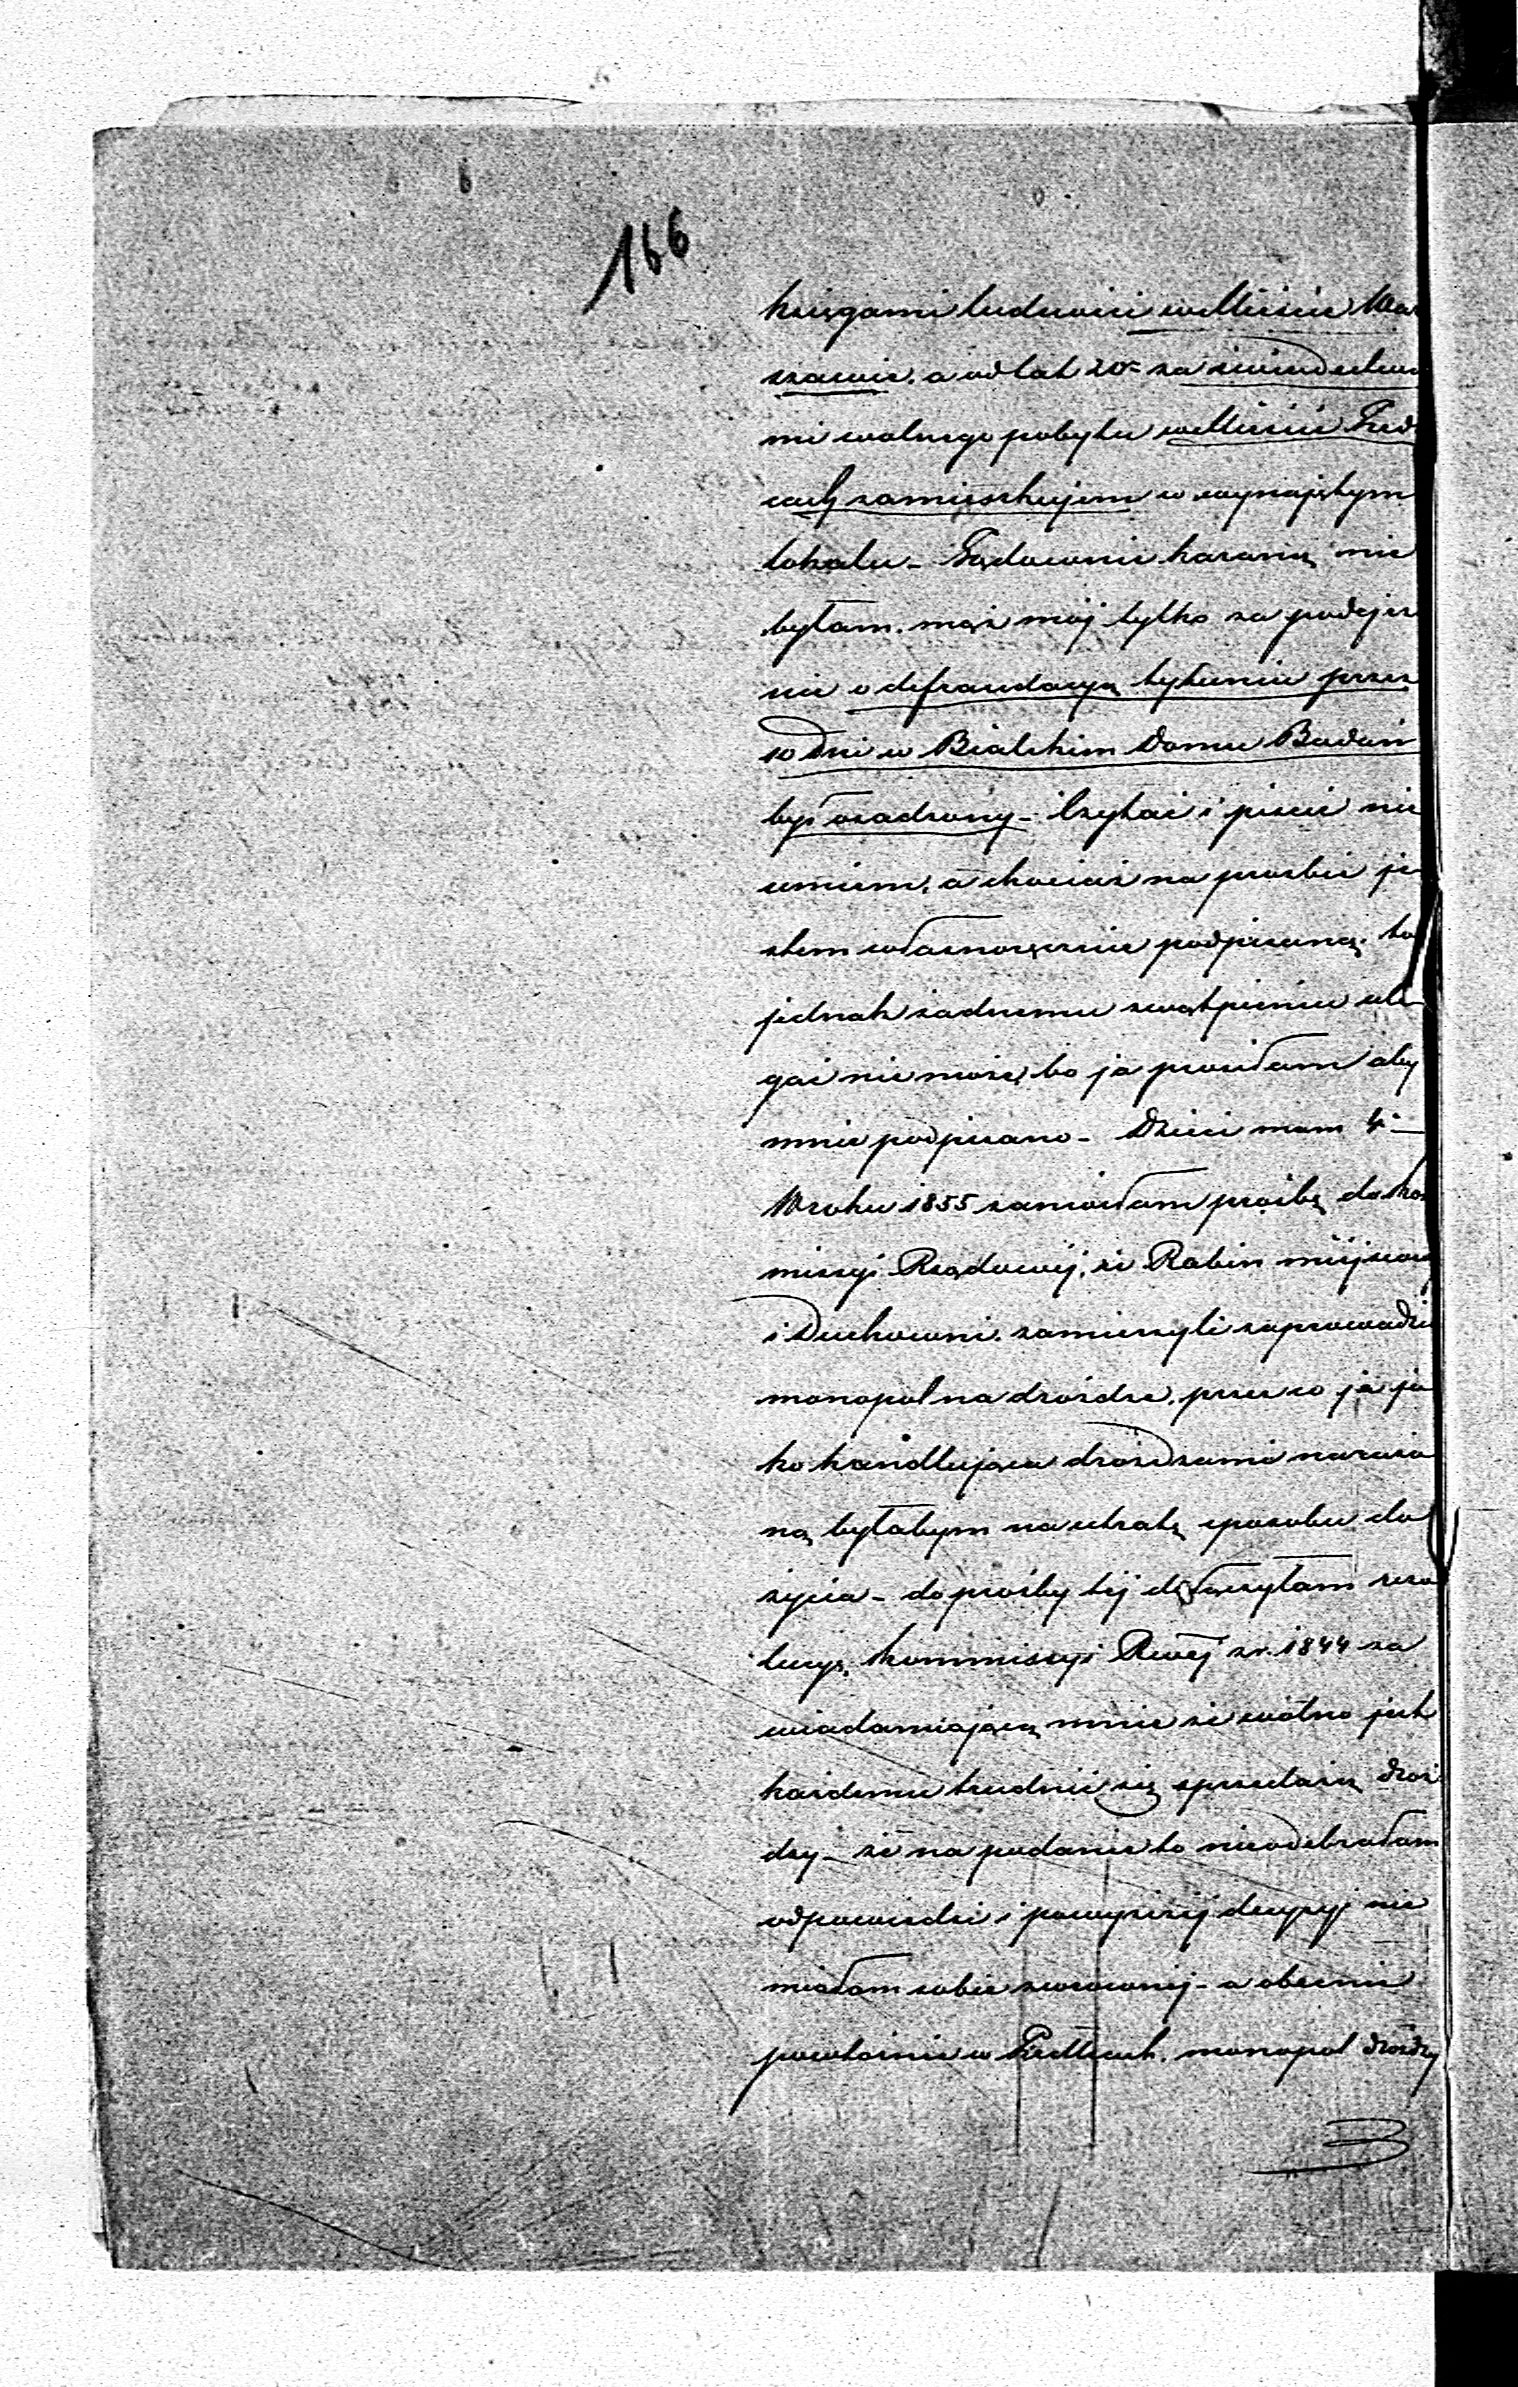 166
księgami ludności w Mieście War
szawie, a od lat 20 za świadectwa
mi wolnego pobytu w Mieście Siedl
cach zamieszkujem w wynajętym
lokalu – Sądownie karaną nie
byłam, mąż mój tylko za podejrze
nie o defraudacyą tytuniu przez
10 dni w Bialskim Domu Badań
był osadzony – Czytać i pisać nie
umiem, a chociaż na prośbie je
stem własnoręcznie podpisaną, to
jednak żadnemu zwątpieniu ule
gać nie może, bo ja prosiłam aby
mnie podpisano – Dzieci mam 4 –
W roku 1855 zaniosłam prośbę do Kom
missyi Rządowéj, że Rabin miéjscowy
i Duchowni zamierzyli zaprowadzić
monopol na drożdże, przez co ja ja
ko handlująca drożdżami narażo
ną byłabym na utratę sposobu do
życia – do prośby téj dołączyłam rezo
lucyę Kommissyi Rwéj z r. 1844 za
wiadamiającą mnie że wolno jest
każdemu trudnić się sprzedażą droż
dży – że na podanie to nieodebrałam
odpowiedzi i powyższéj decyzyj nie
miałam sobie zwróconéj – a obecnie
powtórnie w Siedlcach monopol drożdży